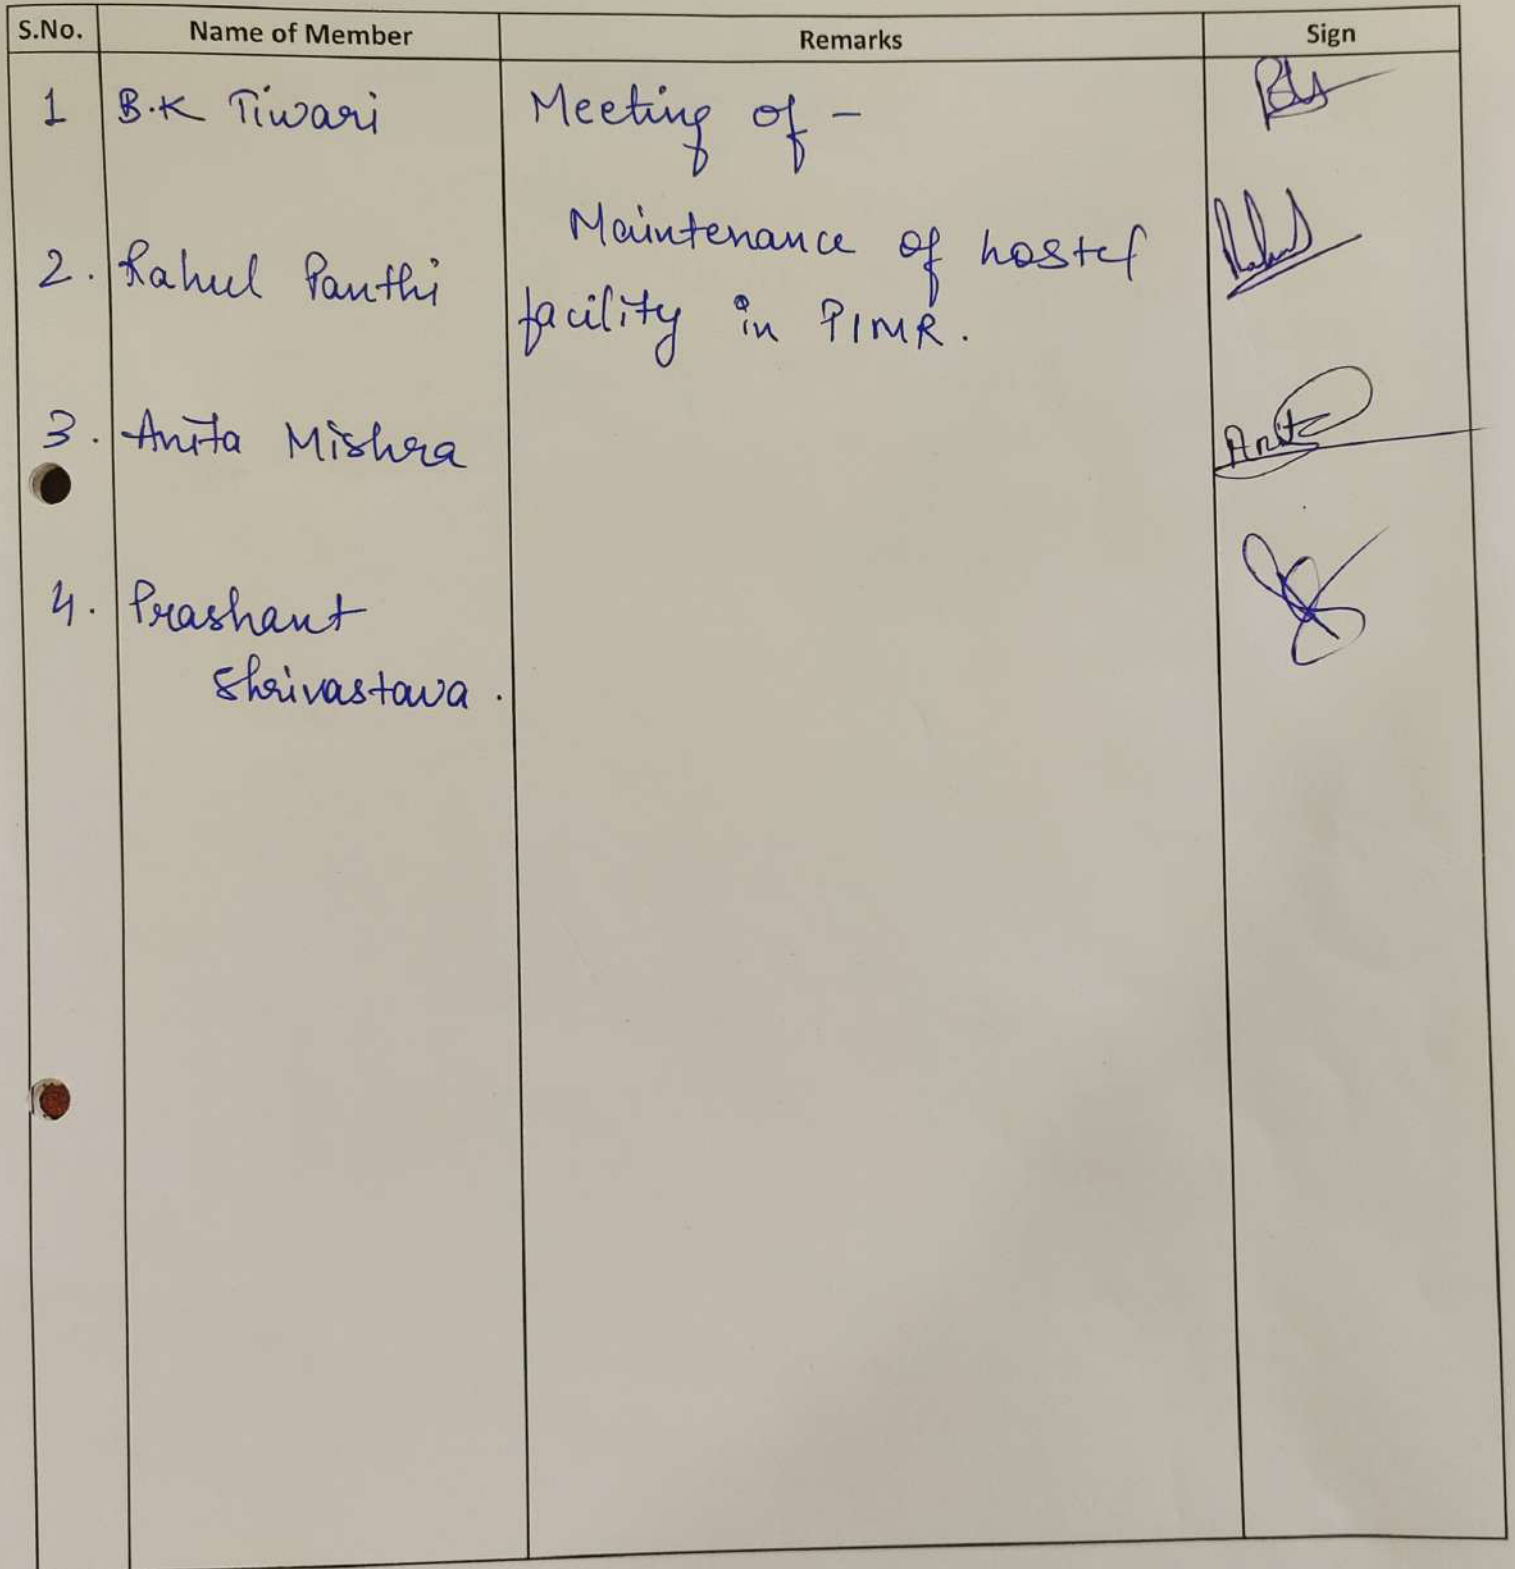 S.No. Name of Member Remarks Sign
1 B.K Tiwari Meeting of -
Maintenance of hostel
2. Rahul Panthi
facility in PIMR.
3. Anita Mishra
Anita
4. Prashant
Shrivastava.